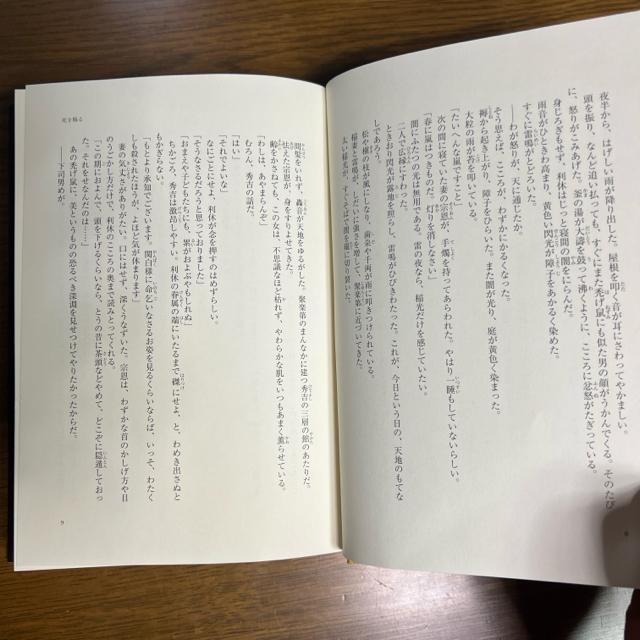 夜半から、はげしい雨が降り出した。屋根を叩く音が耳にさわってやかましい。
頭を振り、なんど追い払っても、すぐにまた禿げ鼠にも似た男の顔がうかんでくる。そのたび
に、怒りがこみあげた。釜の湯が大濤を鼓って沸くように、こころに忿怒がたぎっている。
身じろぎもせず、利休はじっと寝間の闇をにらんだ。
雨音がひときわ高まり、黄色い閃光が障子をあかるく染めた。
すぐに雷鳴がとどろいた。
――わが怒りが、天に通じたか。
そう思えば、こころが、わずかにかるくなった。
褥から起き上がり、障子をひらいた。また闇が光り、庭が黄色く染まった。
大粒の雨が苔を叩いている。
「たいへんな嵐ですこと」
次の間に寝ていた妻の宗恩が、手燭を持ってあらわれた。やはり一睡もしていないらしい。
「春に嵐はつきものだ。灯りを消しなさい」
闇にふたつの光は無用である。雷の夜なら、稲光だけを感じていたい。
二人で広縁にすわった。
ときおり閃光が露地を照らし、雷鳴がひびきわたった。これが、今日という日の、天地のもてな
しであろう。
松や槇の枝が風にしなり、歯朶や千両が雨に叩きつけられている。
稲妻と雷鳴が、しだいに強さを増して、聚楽第に近づいてきた。
太い稲光が、すぐそばで闇を縦に切り裂いた。
死を賜る
間髪をいれず、轟音が天地をゆるがした。聚楽第のまんなかに建つ秀吉の三層の館のあたりだ。
怯えた宗恩が、身をすりよせてきた。
齢をかさねても、この女は、不思議なほど枯れず、やわらかな肌をいつもあまく薫らせている。
「わしは、あやまらんぞ」
むろん、秀吉の話だ。
「はい」
「それでよいな」
なにごとにせよ、利休が念を押すのはめずらしい。
「そうなさるだろうと思っておりました」
「おまえや子どもたちにも、累がおよぶやもしれぬ」
ちかごろ、秀吉は激昂しやすい。利休の眷属の端にいたるまで磔にせよ、と、わめき出さぬと
もかぎらない。
「もとより承知でございます。関白様に命乞いなさるお姿を見るくらいならば、いっそ、わたく
しも殺されたほうが、よほど気が休まります」
妻の気丈さがありがたい。口にはせず、深くうなずいた。宗恩は、わずかな首のかしげ方や目
のうごかし方だけで、利休のこころの奥まで読みとってくれる。
「この期におよんで、頭を下げるくらいなら、とうの昔に茶頭などやめて、どこぞに隠遁しておっ
た。それをせなんだのは……」
あの禿げ鼠に、美というものの恐るべき深淵を見せつけてやりたかったからだ。
――下司男めが。
9